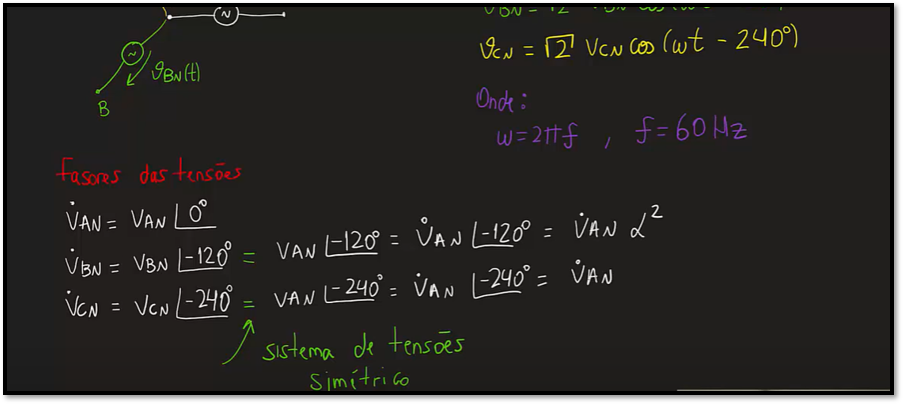 v_BN = √2 V_BN cos(ω
v_CN = √2 V_CN cos(ωt - 240°)
v_BN(t)
B
Onde:
ω = 2πf , f = 60 Hz
Fasores das tensões
V̇_AN = V_AN ∠0°
V̇_BN = V_BN ∠-120° = V_AN ∠-120° = V̇_AN ∠-120° = V̇_AN α²
V̇_CN = V_CN ∠-240° = V_AN ∠-240° = V̇_AN ∠-240° = V̇_AN
sistema de tensões
simétrico